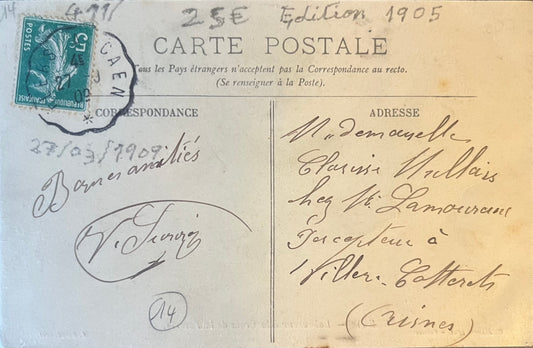 14 25€ Edition 1905
CARTE POSTALE
Tous les Pays étrangers n'acceptent pas la Correspondance au recto.
(Se renseigner à la Poste).
5c
POSTES
REPUBLIQUE FRANÇAISE
CAEN
27
09
CORRESPONDANCE
27/03/1909
Bonnes amitiés
V.
14
ADRESSE
Mademoiselle
Clarisse
chez Mr Lamoureux
Percepteur à
Villers-Cotterets
(Aisne)